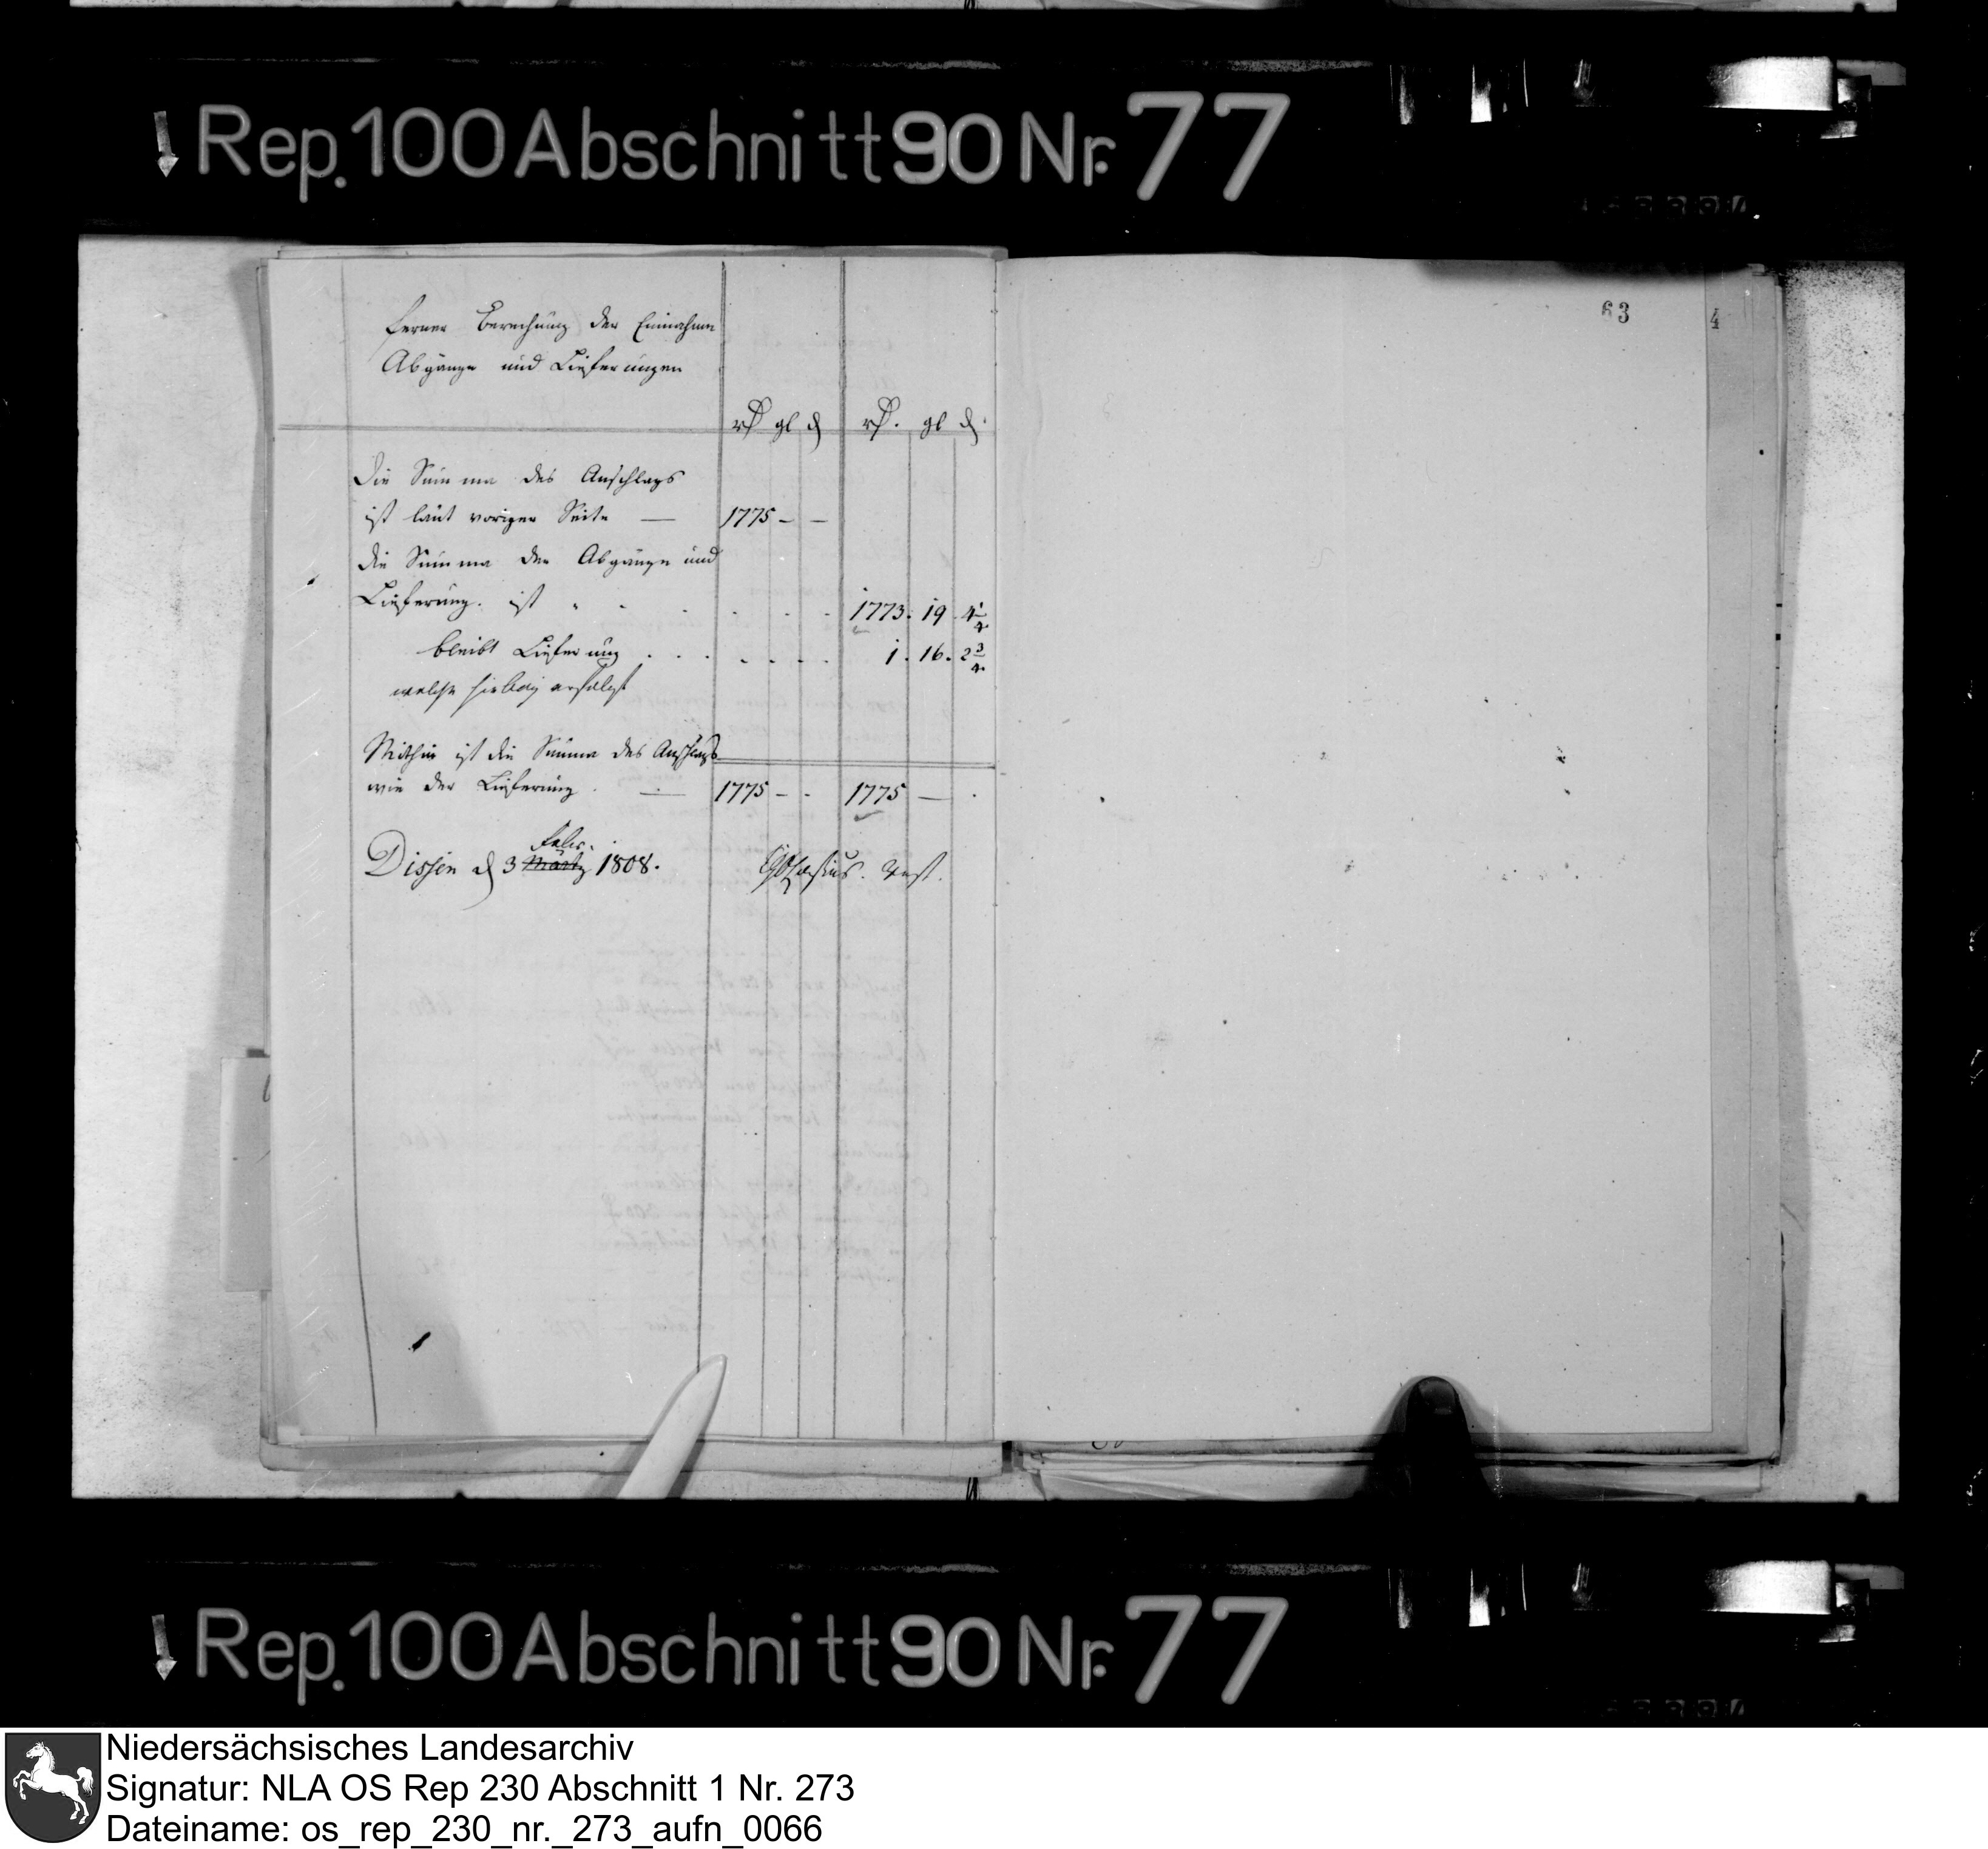 Rep. 100 Abschnitt 90 Nr. 77
63
4
ferner Berechnung der Einnahme
Abgänge und Lieferungen
rt gl d rt. gl d.
Die Summa des Anschlags
ist laut voriger Seite — 1775 - -
die Summa der Abgänge und
Lieferung. ist . . . . . . 1773. 19. 4 1/4
bleibt Lieferung . . . . . . . 1. 16. 2 3/4
welche hiebey erfolgt
Mithin ist die Summa des Anschlags
wie der Lieferung . — 1775 - - 1775 — .
Febr.
Dissen d 3 Märtz 1808.
Rep. 100 Abschnitt 90 Nr. 77
Niedersächsisches Landesarchiv
Signatur: NLA OS Rep 230 Abschnitt 1 Nr. 273
Dateiname: os_rep_230_nr._273_aufn_0066